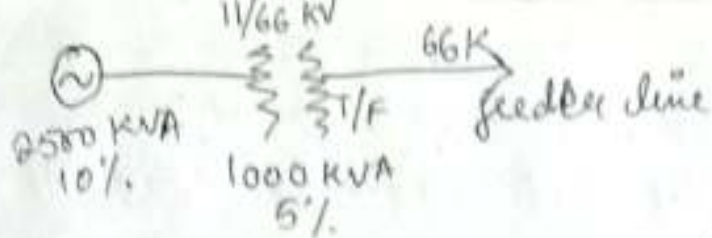 11/66 KV
66K
~
T/F
feeder line
2500 KVA
10%.
1000 KVA
5%.